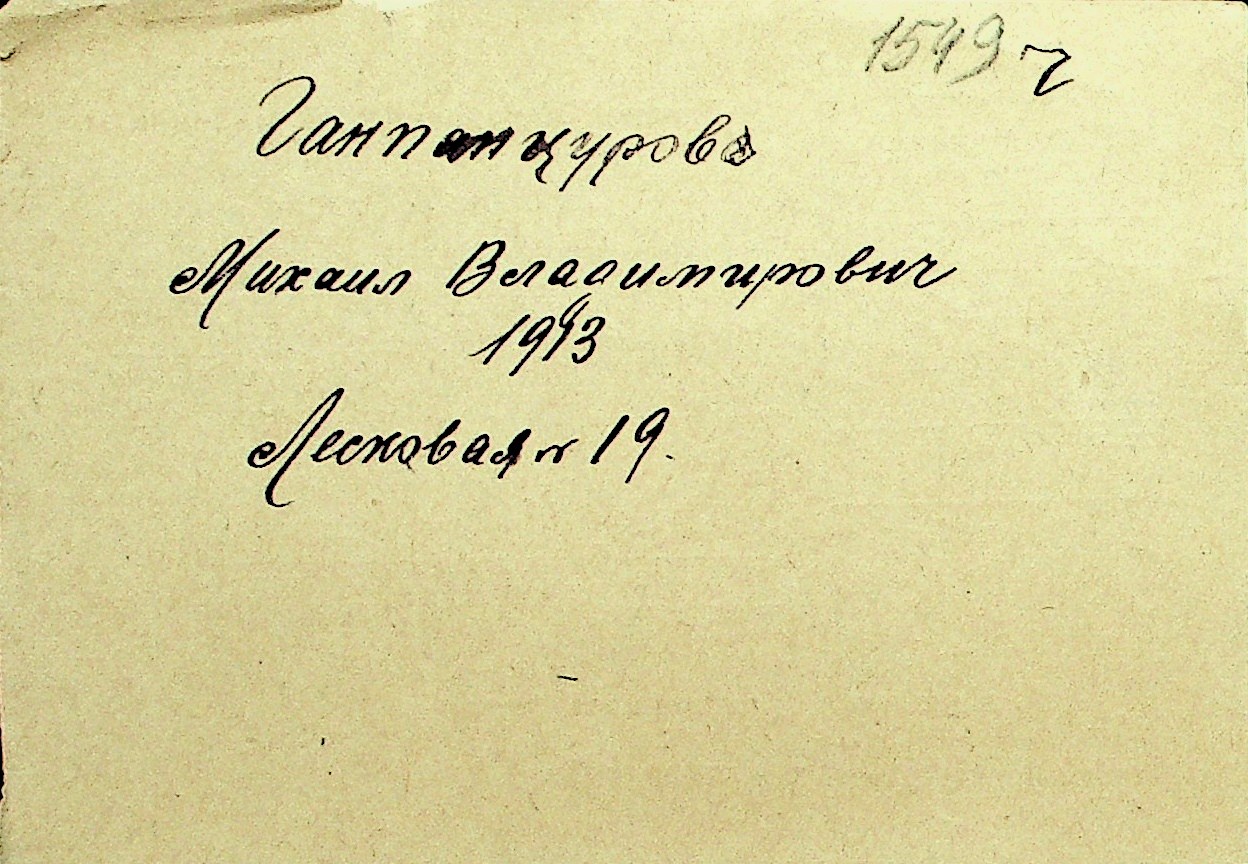 1549 ч
Ганпанцуров
Михаил Владимирович
1913
Лесковая № 19.